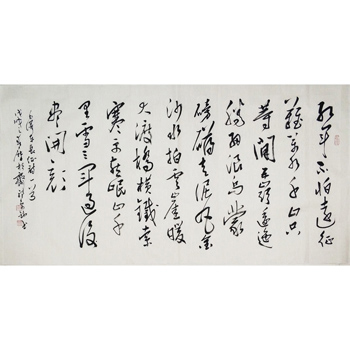 红军不怕远征
难万水千山只
等闲五岭逶迤
腾细浪乌蒙
磅礴走泥丸金
沙水拍云崖暖
大渡桥横铁索
寒更喜岷山千
里雪三军过后
尽开颜
毛泽东长征诗一首
戊戌之